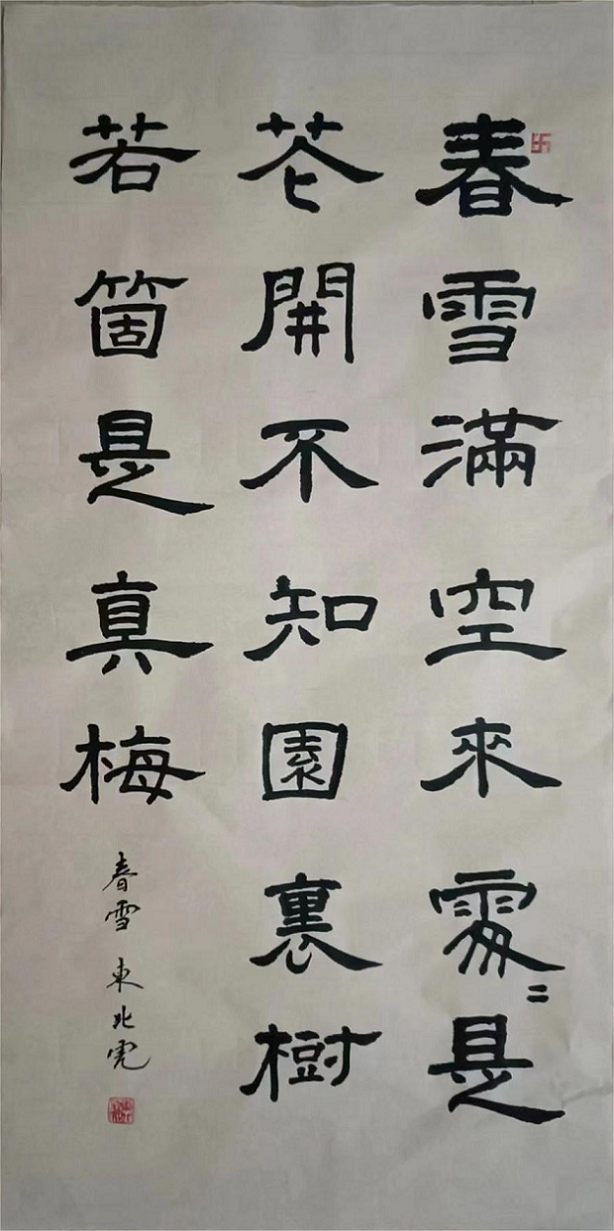 春雪滿空來處〻是
花開不知園裏樹
若箇是真梅
春雪 東北虎